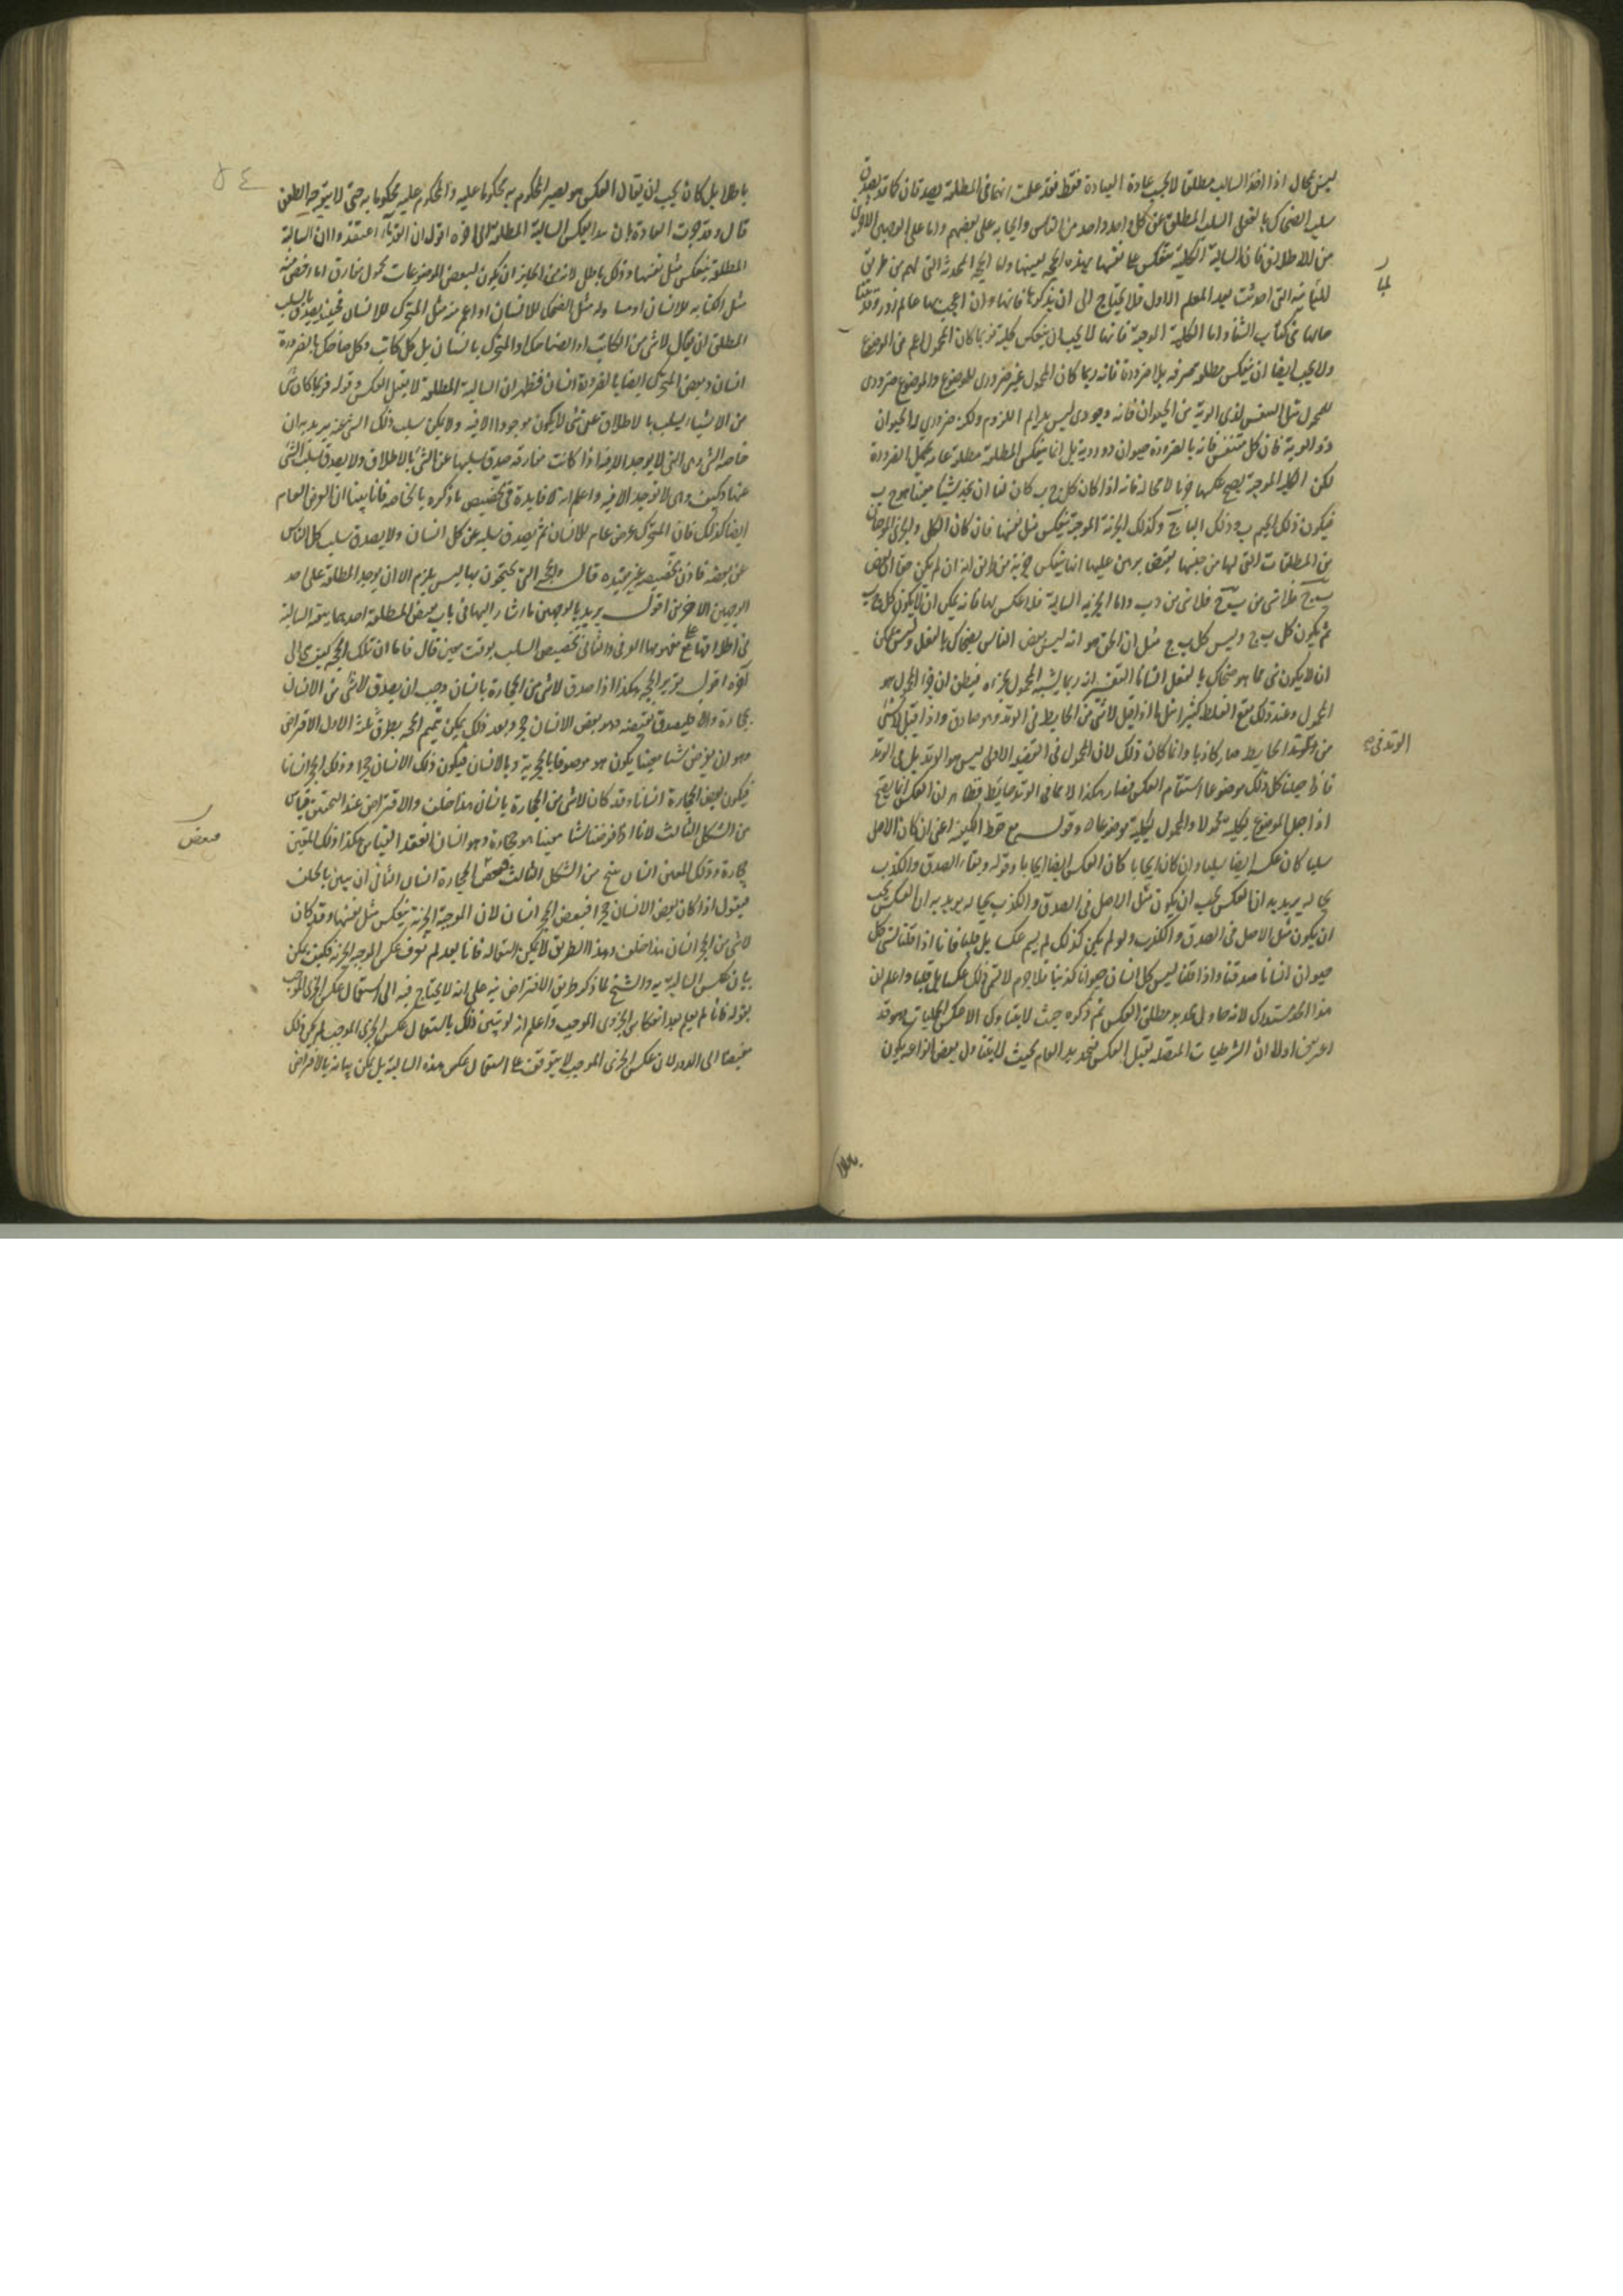 ليس بمحال اذا اخذ السالب مطلقا لا بحسب عادة العبادة فقط فقد علمت انهما فى المطلقة يصدقان كما قد يصدق
سلب الضحاك بالفعل السلب المطلق عن كل واحد واحد من الناس وايجابه على بعضهم واما على الوجهين الآخرين
من الاطلاق فان السالبة الكلية تنعكس على نفسها بهذه الحجة بعينها واما الحجج المحدثة التى لهم من طريق
المباينة التى احدثت بعد المعلم الاول فلا يحتاج الى ان نذكرها فانها وان اعجب بها عالم مزورة وقد بينا
حالها فى كتاب الشفا واما الكلية الموجبة فانها لا يجب ان ينعكس كلية فربما كان المحمول اعم من الموضوع
ولا يجب ايضا ان ينعكس مطلقة صرفة بلا ضرورة فانه ربما كان المحمول غير ضرورى للموضوع والموضوع ضرورى
للمحمول مثل التنفس لذى الرية من الحيوان فانه وجودى ليس بدايم اللزوم ولكنه ضرورى له الحيوان
ذو الرية فان كل متنفس فانه بالضرورة حيوان ذو رية بل انما ينعكس المطلقة مطلقة عامة تحتمل الضرورة
لكن الكلية الموجبة يصح عكسها جزئيا لا محالة فانه اذا كان كل ج ب كان لنا ان نجد شيئا معينا هو ج ب
فيكون ذلك الجيم ب وذلك الباء ج وكذلك الجزئية الموجبة تنعكس مثل نفسها فان كان الكلى والجزئى الموجبان
من المطلقات التى لها من جنسها نقيض برهن عليها انها تنعكس جزئية من طريق انه ان لم يكن حقا ان بعض
ب ج فلا شى من ب ج فلا شى من ج ب واما الجزئية السالبة فلا عكس لها فانه يمكن ان لا يكون كل ج ب
ثم يكون كل ب ج وليس كل ب ج مثل ان الحق هو انه ليس بعض الناس بضحاك بالفعل وليس يمكن
ان لا يكون شى مما هو ضحاك بالفعل انسانا التفسير انه ربما يشبه المحمول بجزء فيظن ان جزء المحمول هو
المحمول وعند ذلك يقع الغلط كثيرا مثل ما اذا قيل لا شى من الحايط فى الوتد وهو صادق واذا قيل لا شى
من الوتد الحايط صار كاذبا وانما كان ذلك لان المحمول فى القضية الاولى ليس هو الوتد بل فى الوتد
فاذا جعلنا كل ذلك موضوعا استقام العكس فصار هكذا لا مما فى الوتد حايط فظاهر ان العكس انما يصح
اذا جعل الموضوع بكليته محمولا والمحمول بكليته موضوعا وقوله مع حفظ الكيفية اعنى ان كان الاصل
سلبا كان عكسه ايضا سلبا وان كان ايجابا كان العكس ايضا ايجابا وقوله وبقاء الصدق والكذب
بحاله يريد به ان العكس يجب ان يكون مثل الاصل فى الصدق والكذب بحاله يريد به ان العكس يجب
ان يكون مثل الاصل فى الصدق والكذب ولو لم يكن كذلك لم يسم عكسا بل قلبا فانا اذا قلنا ليس كل
حيوان انسانا صدقنا واذا قلنا ليس كل انسان حيوانا كذبنا فلا جرم لا تسمى ذلك عكسا بل قلبا واعلم ان
هذا الحد مستدرك لانه حاول تحديد مطلق العكس ثم ذكره بحيث لا يتناول الا عكس الحمليات وهو قد
اعترف اولا ان الشرطيات المتصلة تقبل العكس فتحديد العام بحيث لا يتناول بعض انواعه يكون
لها
الوتد فى
٥٤
باطلا بل كان يجب ان يقال العكس هو تصيير المحكوم به محكوما عليه والمحكوم عليه محكوما به حتى لا يتوجه الطعن
قال وقد جرت العادة بان يبدا بعكس السالبة المطلقة الى آخره اقول ان القدماء اعتقدوا ان السالبة
المطلقة تنعكس مثل نفسها وذلك باطل لانه من الجايز ان يكون لبعض الموضوعات محمول مفارق اما اخص منه
مثل الكتابة للانسان او مساو له مثل الضحك للانسان او اعم منه مثل المتحرك للانسان فحينئذ يصدق بالسلب
المطلق ان يقال لا شى من الكاتب او الضاحك او المتحرك بانسان بل كل كاتب وكل ضاحك بالضرورة
انسان وبعض المتحرك ايضا بالضرورة انسان فظهر ان السالبة المطلقة لا تقبل العكس وقوله فربما كان شى
من الاشياء يسلب بالاطلاق عن شى لا يكون موجودا الا فيه ولا يمكن سلب ذلك الشى عنه يريد به ان
خاصة الشى وهى التى لا يوجد الا فيه اذا كانت مفارقة صدق سلبها عن الشى بالاطلاق ولا يصدق سلب الشى
عنها وكيف وهى لا توجد الا فيه واعلم انه لا فايدة فى تخصيص ما ذكره بالخاصة فانا بينا ان العرض العام
ايضا كذلك فان المتحرك عرض عام للانسان ثم يصدق سلبه عن كل انسان ولا يصدق سلب كل الناس
عن بعضه فاذن تخصيصه غير مفيد قال والحجة التى يحتجون بها ليس يلزم الا ان يوجد المطلقة على احد
الوجهين الاخرين اقول يريد بالوجهين ما اشار اليهما فى باب نقيض المطلقة احدهما بقاء السالبة
فى اطلاقها على مفهومها العرفى والثانى تخصيص السلب بوقت معين قال فاما ان تلك الحجة كيف هى الى
آخره اقول تقرير الحجة هكذا اذا صدق لا شى من الحجارة بانسان وجب ان يصدق لا شى من الانسان
بحجارة والا فليصدق نقيضه وهو بعض الانسان حجر وبعد ذلك يمكن تتميم الحجة بطرق ثلثة الاول الافتراض
وهو ان نفرض شيئا معينا يكون هو موصوفا بالحجرية وبالانسان فيكون ذلك الانسان حجرا وذلك الحجر انسانا
فيكون بعض الحجارة انسانا وقد كان لا شى من الحجارة بانسان هذا خلف والافتراض عند التحقيق قياس
من الشكل الثالث لانا اذا فرضنا شيئا معينا هو حجارة وهو انسان انعقد القياس هكذا ذلك المعين
حجارة وذلك المعين انسان ينتج من الشكل الثالث بعض الحجارة انسان الثانى ان نبين بالخلف
فنقول اذا كان بعض الانسان حجرا فبعض الحجر انسان لان الموجبة الجزئية تنعكس مثل نفسها وقد كان
لا شى من الحجر انسان هذا خلف وهذا الطريق لا يمكن استعماله فانا بعد لم نعرف عكس الموجبة الجزئية فكيف يمكن
بيان عكس السالبة به والشيخ لما ذكر طريق الافتراض نبه على انه لا يحتاج فيه الى استعمال عكس الجزئى الموجب
بقوله فانا لم نعلم بعد انعكاس الجزوى الموجب واعلم انه لو تبين ذلك باستعمال عكس الجزئى الموجب لم يكن ذلك
مفضيا الى الدور لان عكس الجزئى الموجب لا يتوقف على استعمال عكس هذه السالبة بل يمكن بيانه بالافتراض
فبعض